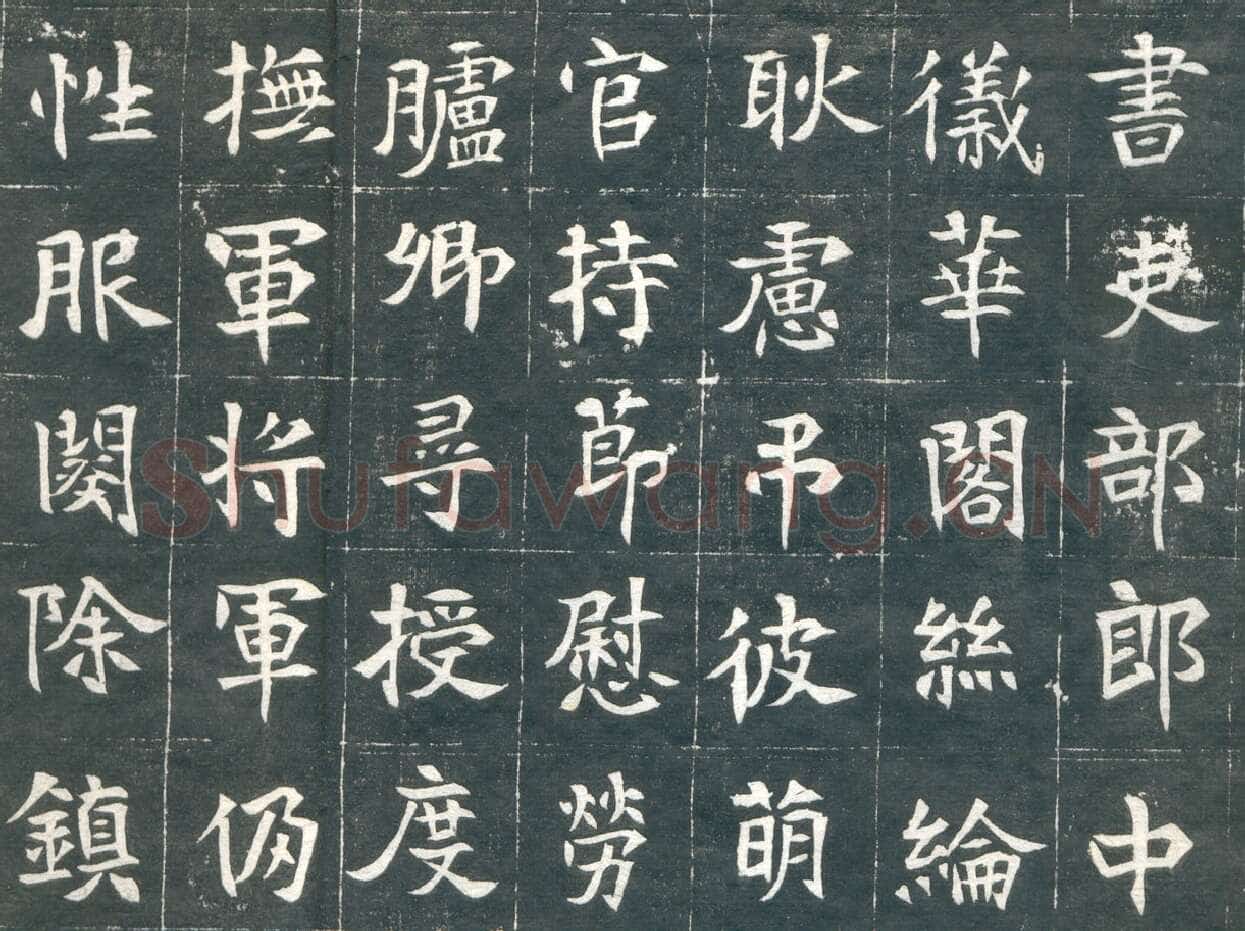 書吏部郎中
儀華閣絲綸
耿慮弔彼萌
官持莭慰勞
臚卿尋授度
撫軍将軍仍
性服闋除鎮
Shufawang.CN